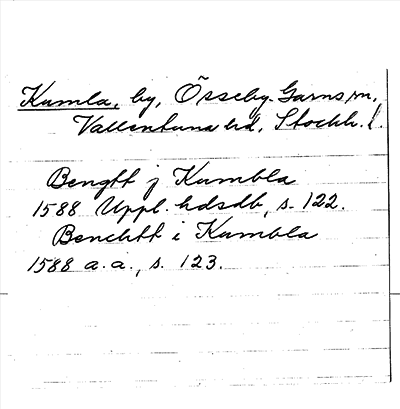 Kumla, by, Össeby-Garns sn,
Vallentuna hd, Stockh. l.
Bengtt j Kumbla
1588 Uppl. hdsdb, s. 122.
Benchtt i Kumbla
1588 a.a., s. 123.